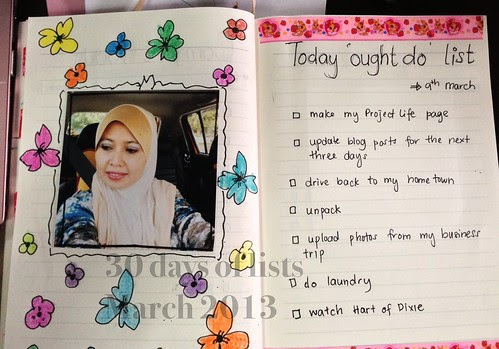 Today 'ought do' list
⇒ 9th march
make my Project Life page
update blog posts for the next
three days
drive back to my home town
unpack
upload photos from my business
trip
do laundry
watch Hart of Dixie
30 days of lists
March 2013